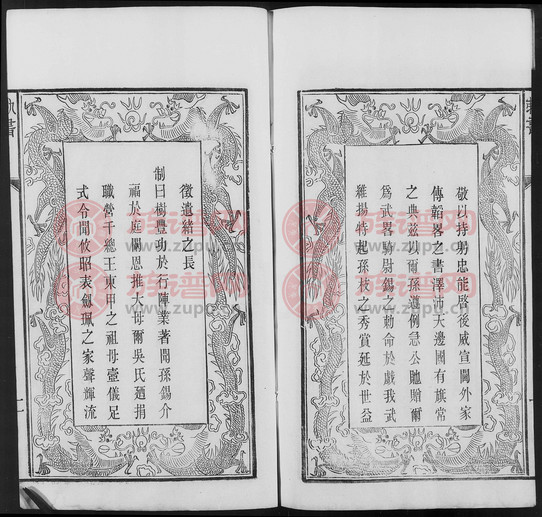 敬以持躬忠能啓後威宣閫外家
傳韜畧之書澤沛天邊國有旂常
之典兹以爾孫遵例急公貤贈爾
爲武畧騎尉錫之勅命於戲我武
維揚特起孫枝之秀賞延於世益
徵遺緒之長
制曰樹豐功於行陣業著聞孫錫介
福於庭闈恩推大母爾吳氏廼捐
職營千總王東甲之祖母壼儀足
式令聞攸昭表劍珮之家聲輝流
族譜網
www.zupu.cn
族譜網
www.zupu.cn